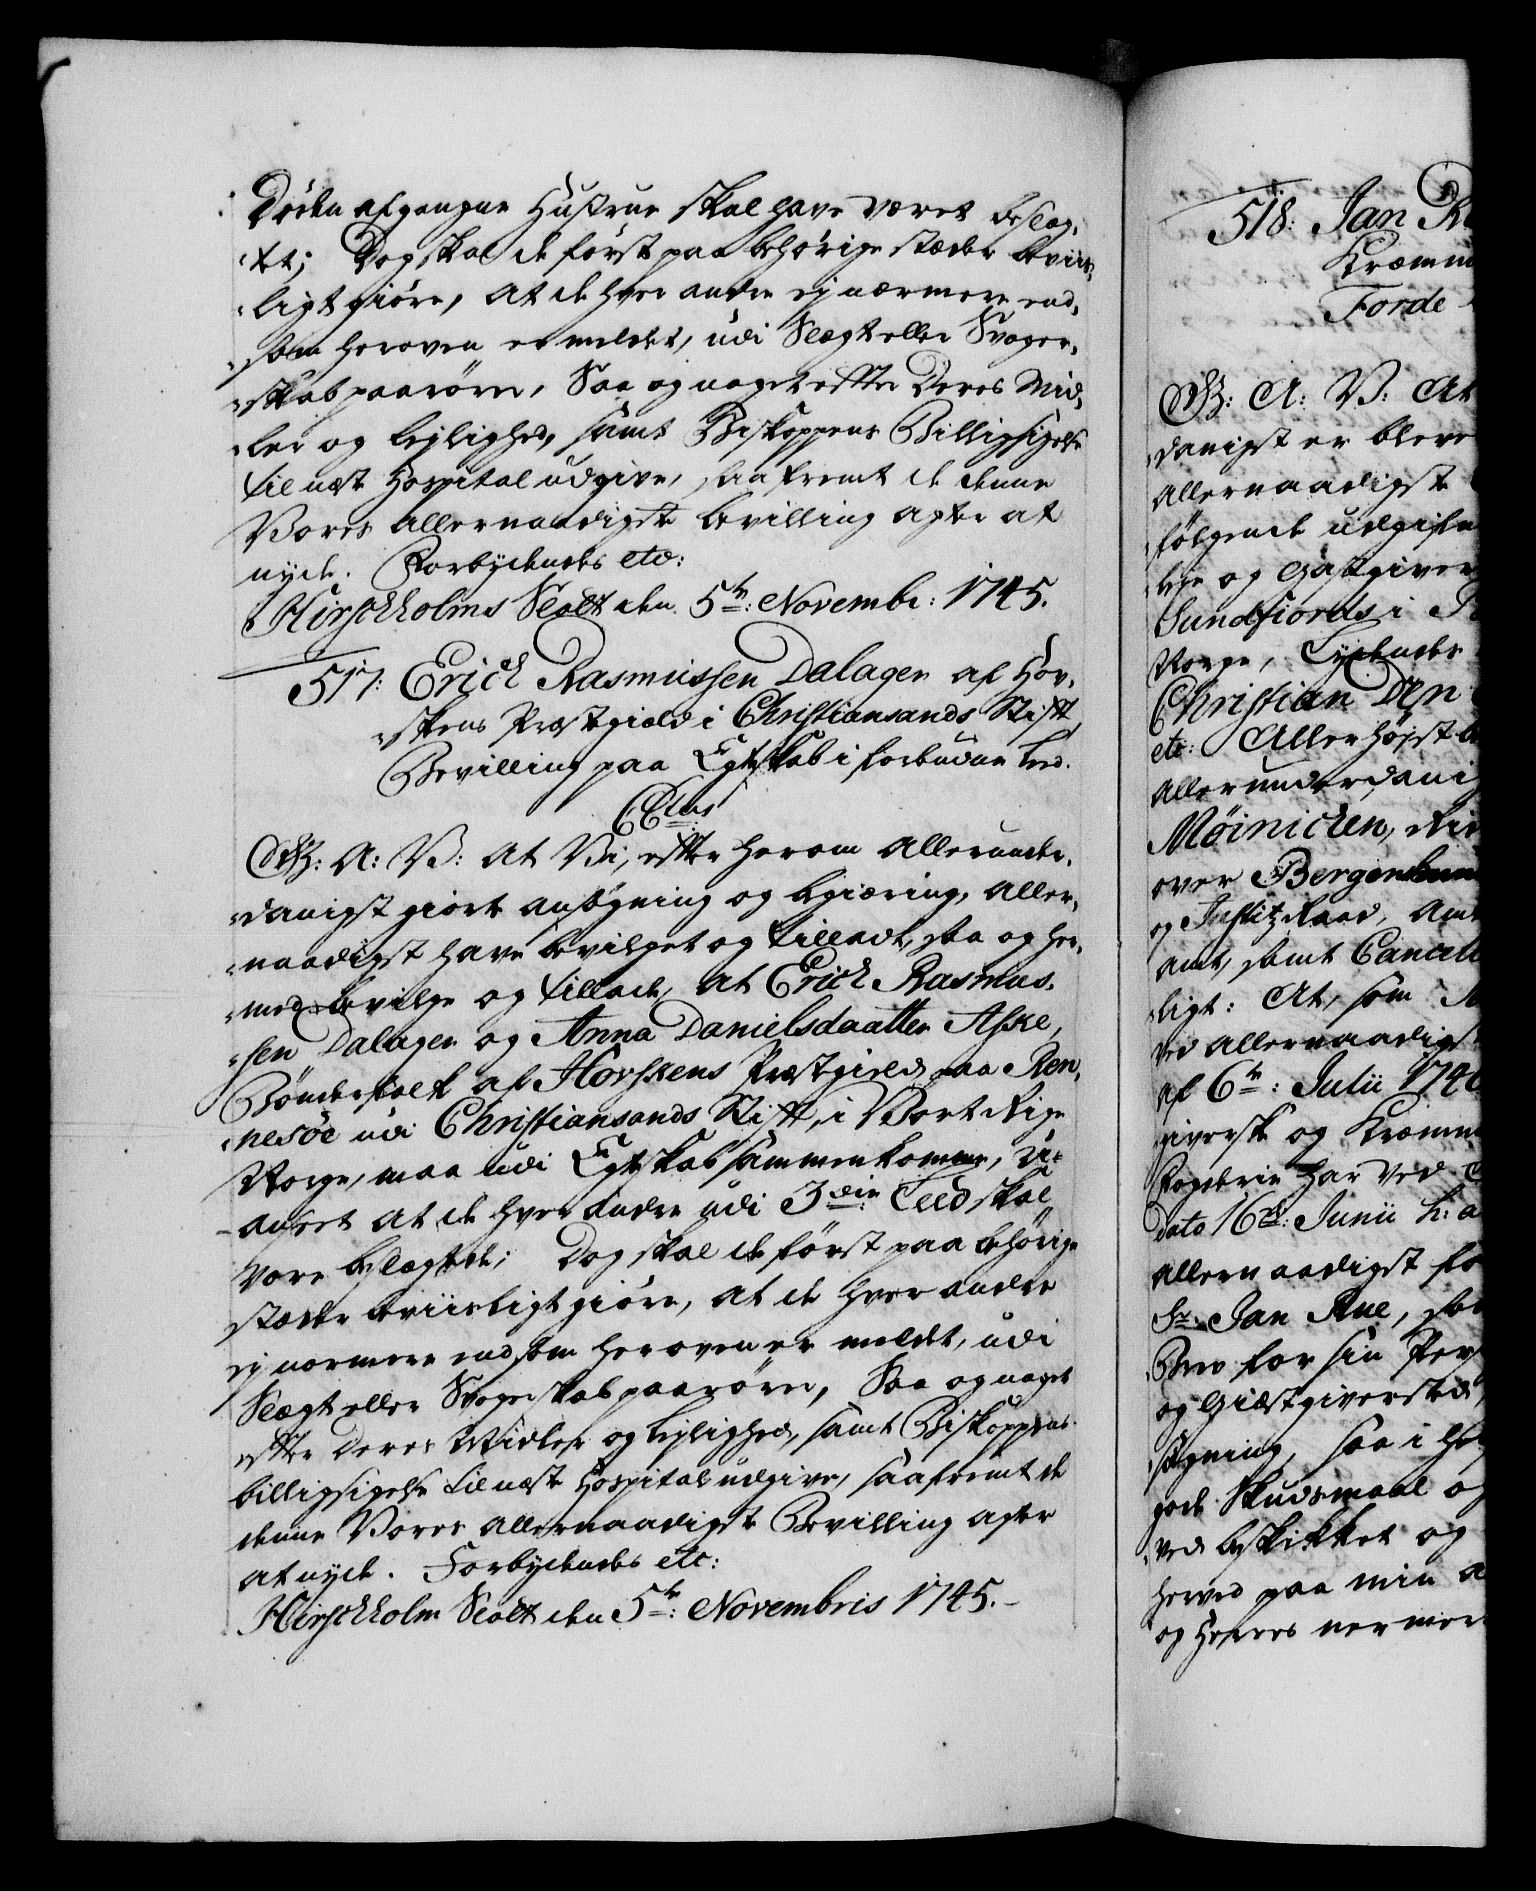 Døden afgangne Hustrue skal have været beslæg-
tet; Dog skal de først paa behørige stæder beviis-
ligt giøre, at de hver andre ej nærmere end,
som heroven er meldet, udi Slægt eller Svoger-
skab paarøre, Saa og noget efter Deres Mid-
ler og lejlighed, samt Biskoppens Billigsigelse
til næst Hospital udgive, saafremt de denne
Vores allernaadigste bevilling agter at
nyde. Forbydendes etc:
Hirschholms Slott den 5te: Novembr: 1745.
517: Erich Rasmussen Dalager af Hor-
skens Præstegield i Christiansands Stift
Bevilling paa Egteskab i forbudne Leed.
C 6tus
G: A: V: at Vi, efter herom allerunder-
danigst giort ansøgning og begiæring, aller-
naadigst have bevilget og tilladt, saa og her-
med bevilge og tillade, at Erich Rasmus-
sen Dalager og Anna Danielsdaatter Aske,
Bønderfolk af Horskens Præstegield paa Ren-
nesøe udi Christiansands Stift, i Vort Rige
Norge, maa udi Egteskab sammenkomme, U-
anseet at de hver andre udi 3die: Leed skal
være beslægtede; Dog skal de først paa behørige
stæder beviisligt giøre, at de hver andre
ej nærmere end som heroven er meldt, udi
Slægt eller Svogerskab paarøre, Saa og noget
efter deres Midler og lejlighed, samt Biskoppens
billigsigelse til næst Hospital udgive, saafremt de
denne Vores allernaadigste Bevilling agter
at nyde. Forbydendes etc:
Hirschholm Slott den 5te: Novembris 1745.
518: Jan R
Kræmme
Forde
G: A: V: At
danigst er bleve
allernaadigste
følgende udgifven
og Gastgiver
Sundfiords i
Norge, Lydendes
Christian Den
etc: Allerhøjst b
allerunderdani
Møinichen, Rid
over Bergenhuus
og Justitz Raad, Amt
amt, samt Cancell
ligt: At, som
ved allernaadigst
af 6te: Julii 1740
giversk og Kræmm
Fogderie har ved
dato 16de: Junii h: a
allernaadigst fo
Sr: Jan Rue, saa
Brev for sin Pers
og Giæstgiversted
søgning, saa i he
gode Skudsmaal og
ved beskikket og
herved paa min a
og Herres nærmer